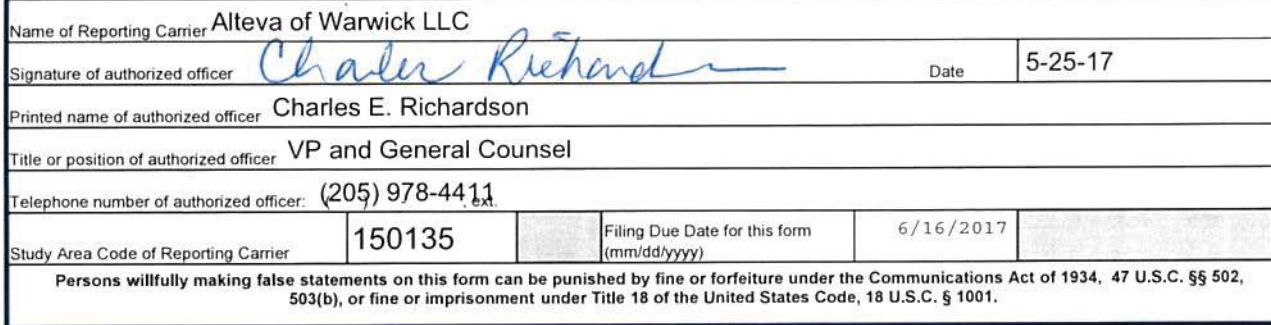 Name of Reporting Carrier Alteva of Warwick LLC
Signature of authorized officer Charles Richard Date 5-25-17
Printed name of authorized officer Charles E. Richardson
Title or position of authorized officer VP and General Counsel
Telephone number of authorized officer: (205) 978-4411 ext.
Study Area Code of Reporting Carrier 150135 Filing Due Date for this form (mm/dd/yyyy) 6/16/2017
Persons willfully making false statements on this form can be punished by fine or forfeiture under the Communications Act of 1934, 47 U.S.C. §§ 502,
503(b), or fine or imprisonment under Title 18 of the United States Code, 18 U.S.C. § 1001.